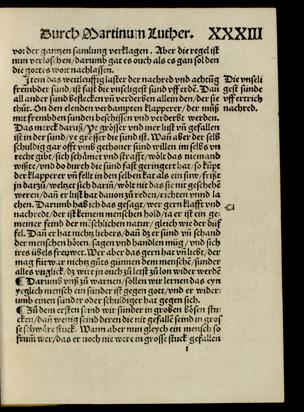 Durch Martinum Luther. XXXIII
vor der gantzen samlung verklagen. Aber die regel ist
nun verloschen/darumb gat es ouch als es gan sol den
die gottes wort nachlassen.
Item das weitleuffig laster der nachred und achtũg Die vnseli
frembder sund/ist fast die vnseligest sund vff erdẽ. Dañ gest sunde
all ander sund beflecken vñ verderben allein den/der sie vff ertrich
thůt. On den elenden verdampten klapperer/der můß nachred.
mit frembden sunden beschissen vnd verderbt werden.
Das merck daruß/Ye grösser vnd mer lust vñ gefallen
ist in der sund/ye grösser die sund ist. Wañ aber der selb
schuldig gar offt vmb gethoner sund willen im selbs vn
recht gibt/sich schämet vnd strafft/wölt das niemand
wißte/vnd do durch die sund fast geringert hat. so falt
der klapperer vñ felt in den selben kat als ein sw/frißt
in darzů/weltzet sich darin/wölt nit das sie nit geschehẽ
weren/dañ er lust hat dauon zů reden/richten vnnd la
chen. Darumb hab ich das gesagt/wer gern klafft vnd
nachrede/der ist keinem menschen hold/ia er ist ein ge-
meiner feind der mẽschlichen natur/gleich wie der düf
fel. Dañ er hat nichtz liebers/dañ dz er sund vñ schand
der menschen hören, sagen vnd handlen müg/vnd sich
ires übels freuwet. Wer aber das gern hat vñ liebt/der
mag für war nichtz gůts günnen dem menschẽ/sunder
alles vnglick/dz wirt jn ouch zů letst zů lon wider werdẽ
¶ Darumb vnß zů warnen/sollen wir lernen das eyn
yeglich mensch ein sunder ist gegen gott/vnd er wider-
umb einen sunder oder schuldiger hat gegen sich.
¶ Zů dem ersten seind wir sunder in großen bösen stu-
cken/dañ wenig seind deren die nit gefallẽ seind in gros
se schwäre stuck. Wann aber nun gleych ein mensch so
frum wer/das er noch nie were in grosse stuck gefallen
i